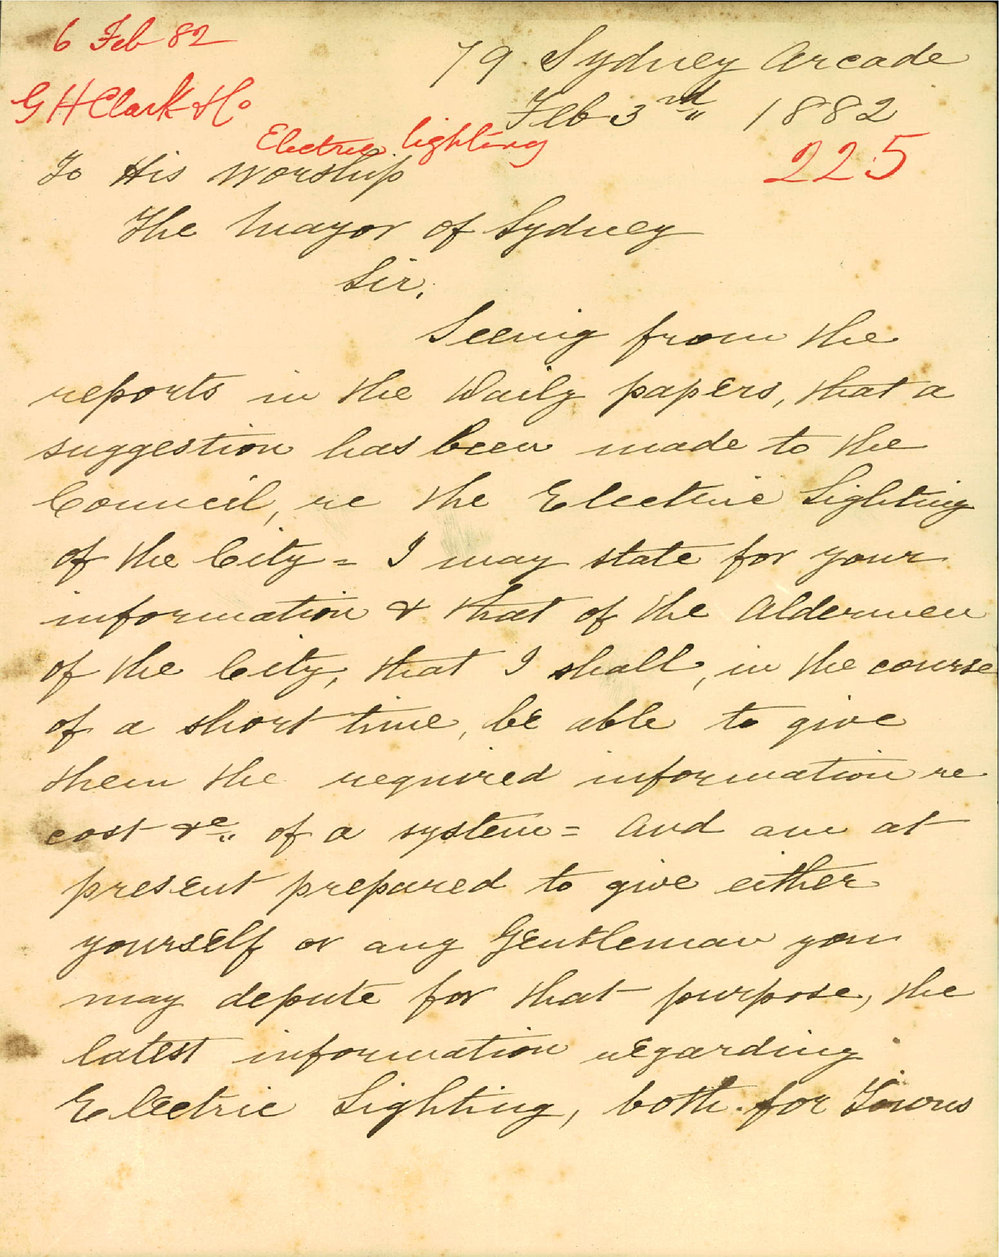 6 Feb 82
79 Sydney Arcade
G H Clark & Co
Feb 3rd 1882
Electric lighting
225
To His Worship
The Mayor of Sydney
Sir,
Seeing from the
reports in the Daily papers, that a
suggestion has been made to the
Council, re the Electric Lighting
of the City = I may state for your
information & that of the Aldermen
of the City, that I shall, in the course
of a short time, be able to give
them the required information re
cost &c. of a system = and am at
present prepared to give either
yourself or any Gentleman you
may depute for that purpose, the
latest information regarding
Electric Lighting, both for Towns